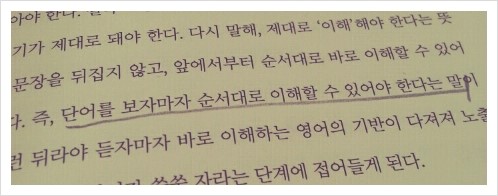 아야 한다.
기가 제대로 돼야 한다. 다시 말해, 제대로 '이해'해야 한다는 뜻
문장을 뒤집지 않고, 앞에서부터 순서대로 바로 이해할 수 있어
다. 즉, 단어를 보자마자 순서대로 이해할 수 있어야 한다는 말이
런 뒤라야 듣자마자 바로 이해하는 영어의 기반이 다져져 노출
쑥쑥 자라는 단계에 접어들게 된다.